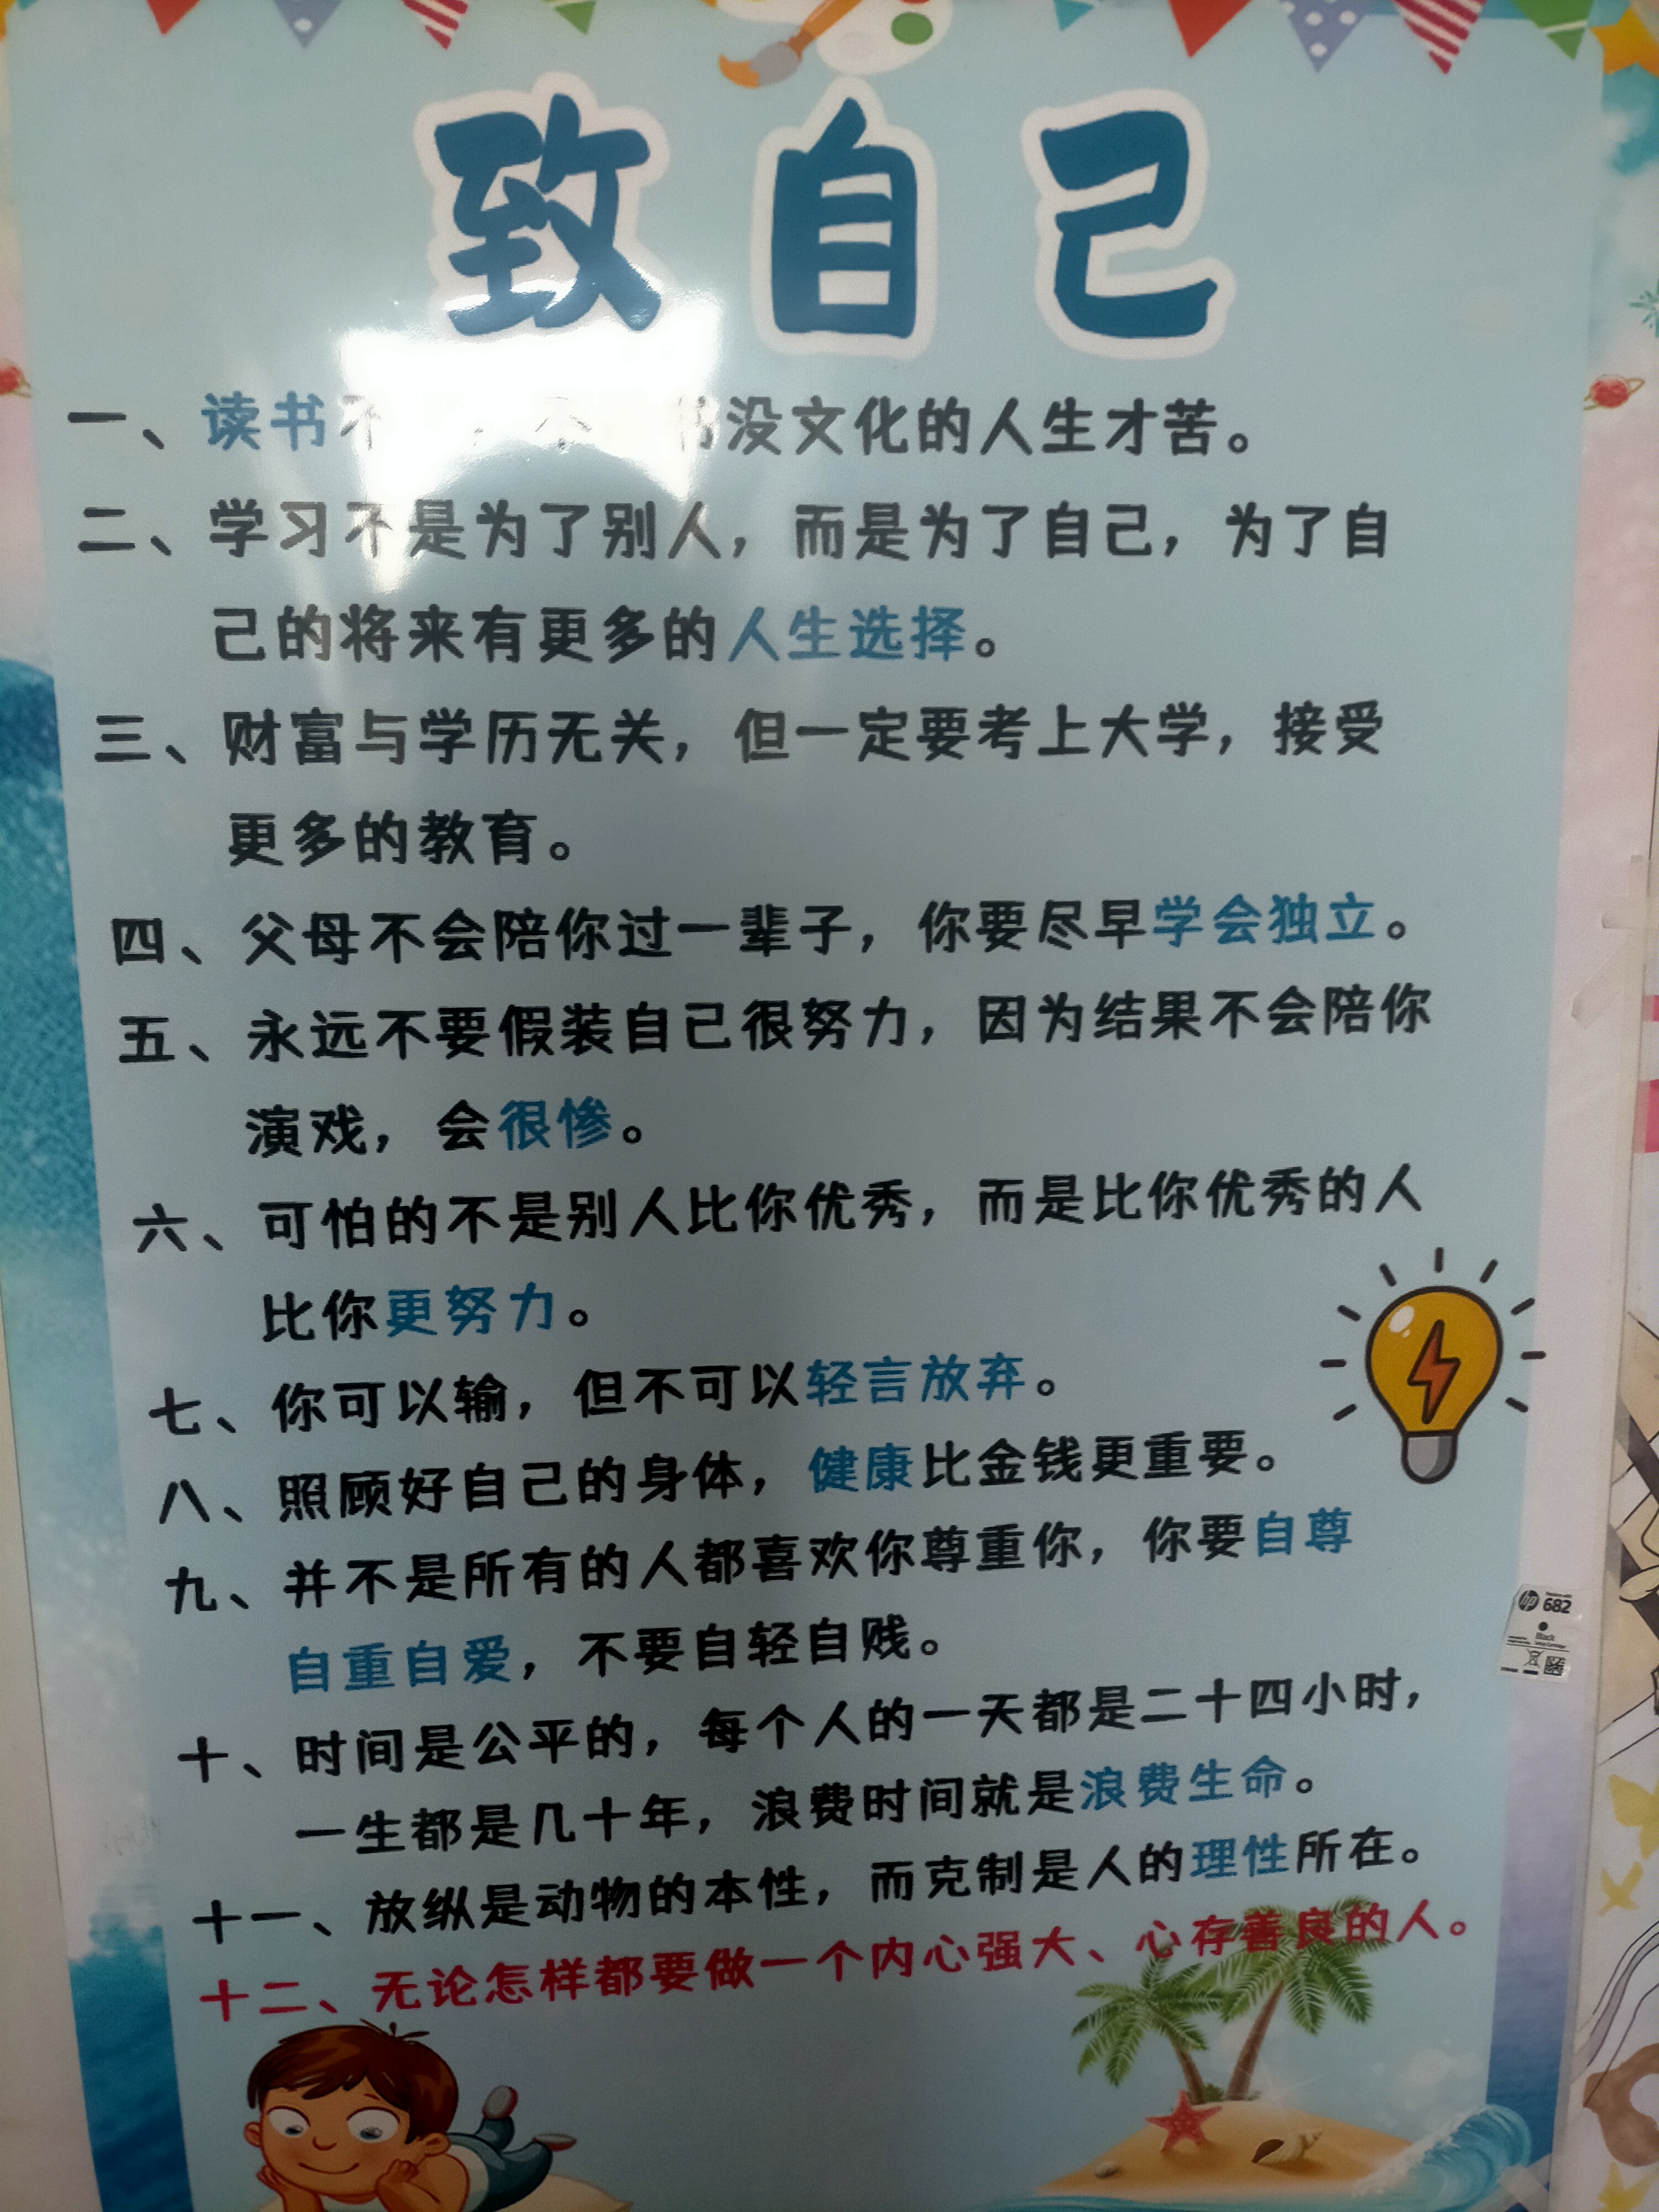 致自己
一、读书不 ，不 书没文化的人生才苦。
二、学习不是为了别人，而是为了自己，为了自
己的将来有更多的人生选择。
三、财富与学历无关，但一定要考上大学，接受
更多的教育。
四、父母不会陪你过一辈子，你要尽早学会独立。
五、永远不要假装自己很努力，因为结果不会陪你
演戏，会很惨。
六、可怕的不是别人比你优秀，而是比你优秀的人
比你更努力。
七、你可以输，但不可以轻言放弃。
八、照顾好自己的身体，健康比金钱更重要。
九、并不是所有的人都喜欢你尊重你，你要自尊
自重自爱，不要自轻自贱。
十、时间是公平的，每个人的一天都是二十四小时，
一生都是几十年，浪费时间就是浪费生命。
十一、放纵是动物的本性，而克制是人的理性所在。
十二、无论怎样都要做一个内心强大、心存善良的人。
hp 682
Black